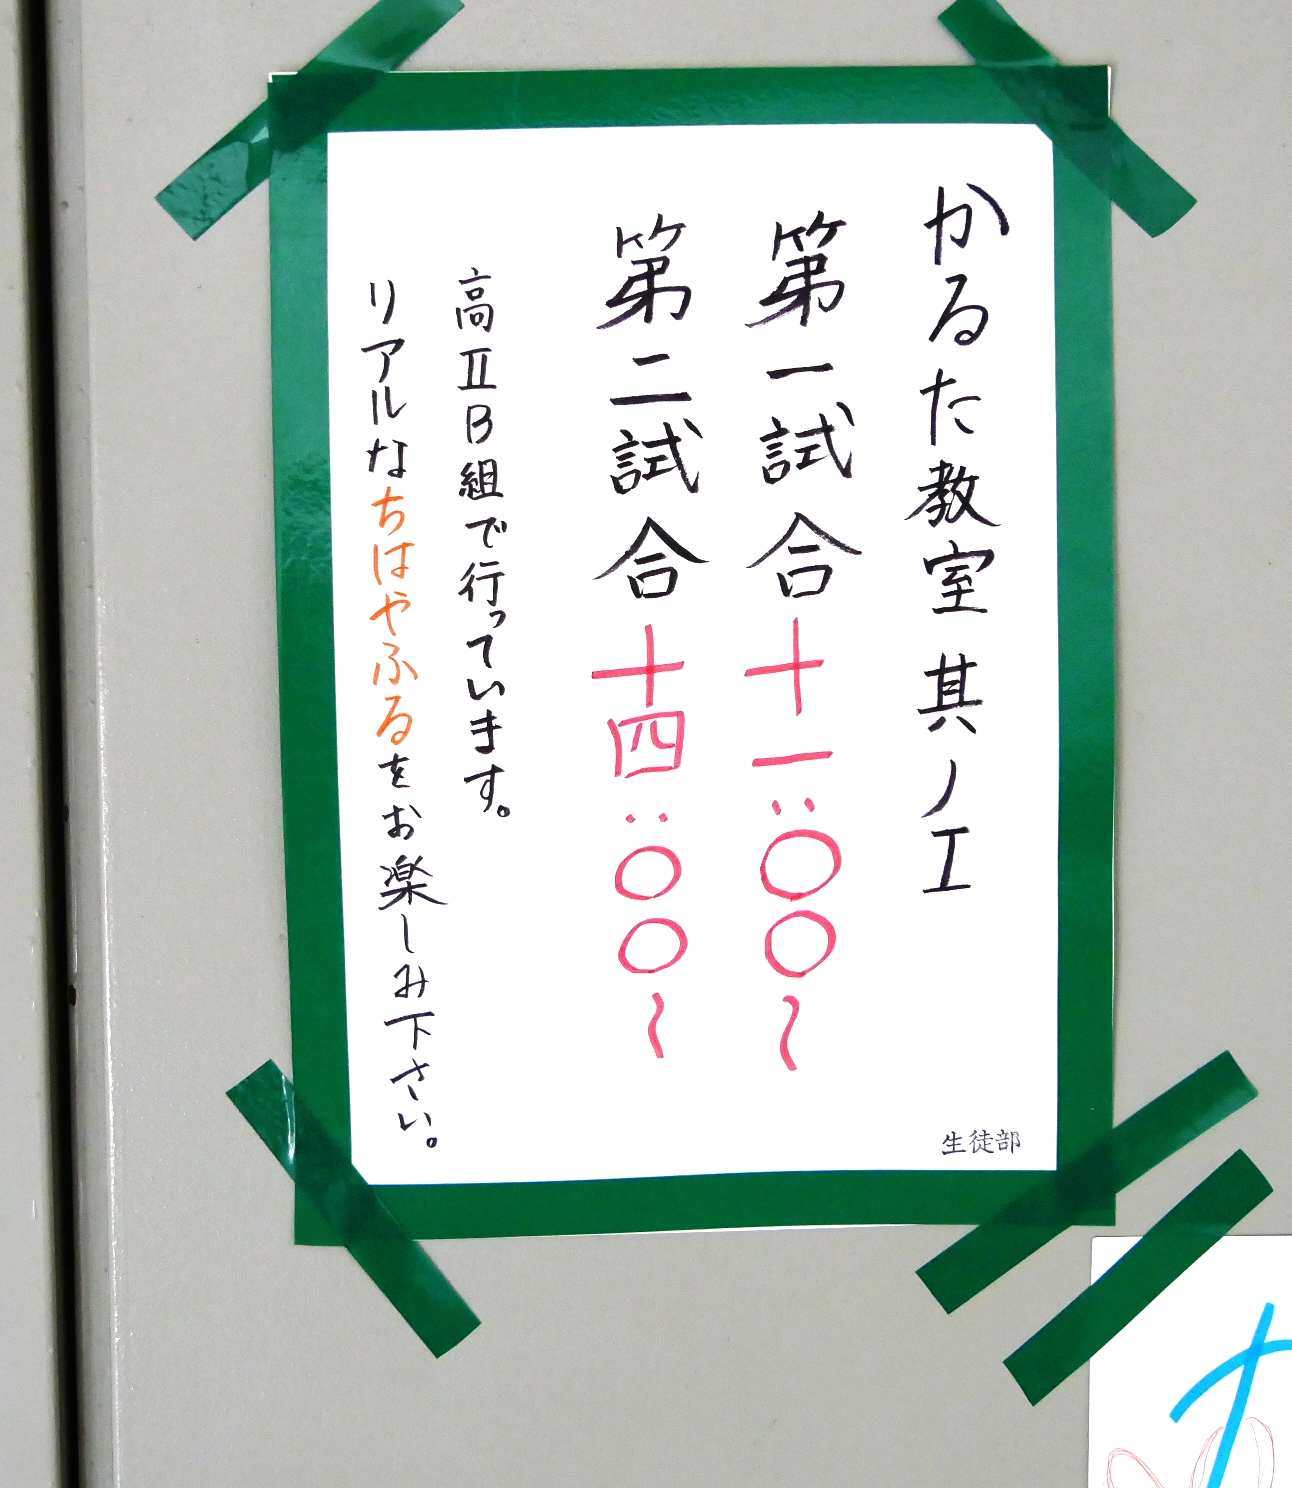 かるた教室 其ノ工
第一試合十一:〇〇~
第二試合十四:〇〇~
高ⅡB組で行っています。
リアルなちはやふるをお楽しみ下さい。
生徒部